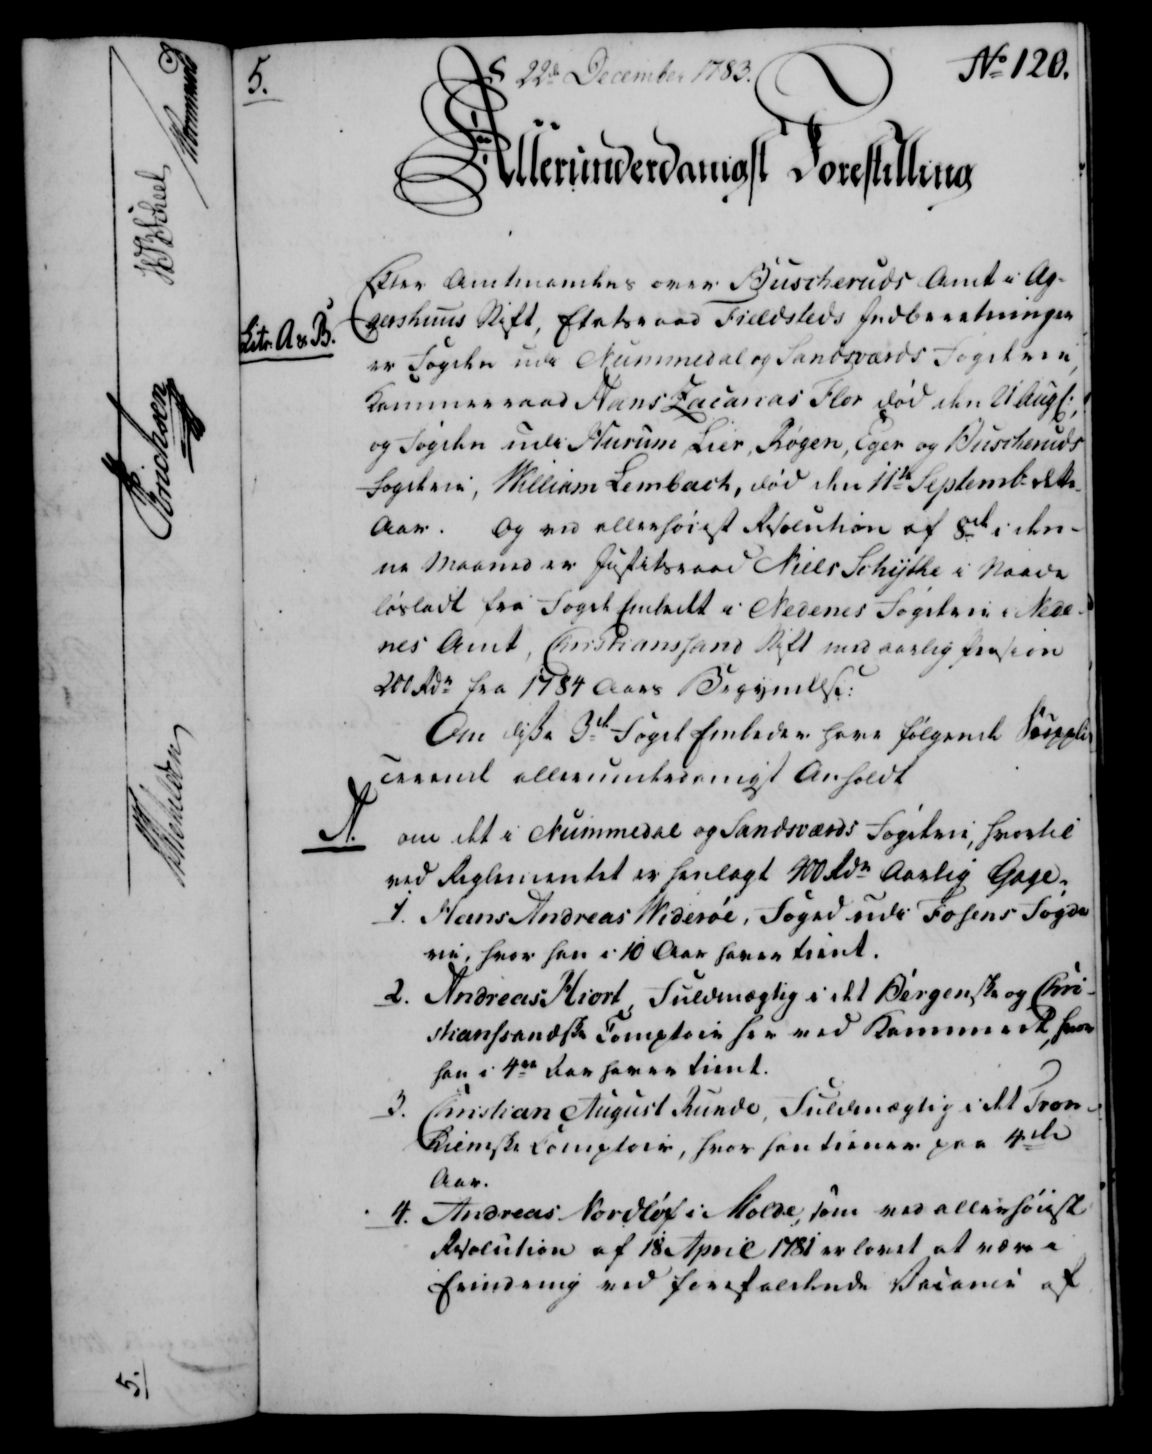 5.
S 22de December 1783.
No 120.
Allerunderdanigst Forestilling
Efter Amtmanden over Buscheruds Amt i Ag-
gershuus Stift, Etatsraad Fieldsteds Indberetninger
Litr. A & B.
er Fogden udi Nummedal og Sandsværds Fogderie,
Kammerraad Hans Zacarias Flor død den 21 Aug:,
og Fogden udi Hurum, Lier, Røgen, Eger og Buscheruds
Fogderie, William Lembach, død den 11te Septembr dette
Aar. Og ved allerhøiest Resolution af 8de i den-
ne Maaned er Justitsraad Niels Schythe i Naade
løsladt fra Foged Embedet i Nedenes Fogderie i Nede-
nes Amt, Christianssand Stift med aarlig Pension
200 Rdr fra 1784 Aars Begyndelse:
Om disse 3de Foged Embeder have følgende Suppli-
cerende allerunderdanigst Anholdt
A. om det i Nummedal og Sandsværds Fogderie, hvortil
ved Reglementet er henlagt 400 Rdr Aarlig Gage.
1. Hans Andreas Widerøe, Foged udi Fosens Fogde
rie, hvor han i 10 Aar haver tient.
2. Andreas Hiort, Fuldmægtig i det Bergenske og Chri-
stianssandske Comptoir her ved Kammeret, hvor
han i 4re Aar haver tient.
3. Christian August Runde, Fuldmægtig i det Tron-
hiemske Comptoir, hvor han tiener paa 4de
Aar.
4. Andreas Nordløf i Molde, som ved allerhøiest
Resolution af 18 April 1781 er lovet at være i
Erindring ved forefaldende Vacance af
5.